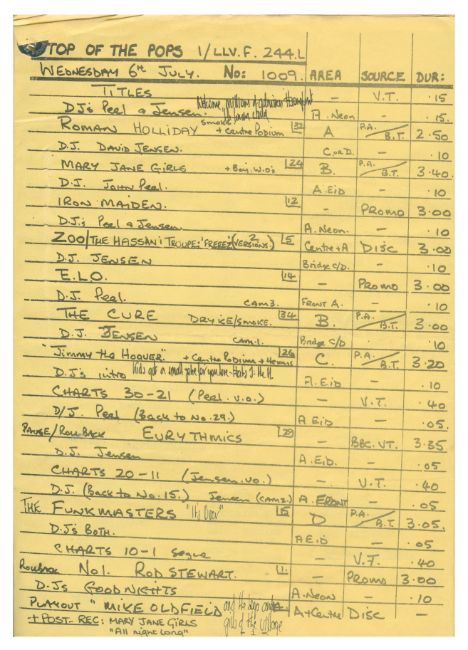 TOP OF THE POPS 1/LLV.F. 244.L
WEDNESDAY 6th JULY. No: 1009. AREA SOURCE DUR:
TITLES — V.T. .15
DJ's Peel & Jensen. A. Neon — 15.
ROMAN HOLLIDAY smoke + Centre Podium 32 A P.A./B.T. 2.50
D.J. DAVID JENSEN. C or D. — .10
MARY JANE GIRLS + Boy W.O's 24 B. P.A./B.T. 3.40.
D.J. JOHN Peel. A E i D — .10
IRON MAIDEN. 12 — PROMO 3.00
DJ's Peel & Jensen. A. Neon. — .10
ZOO/THE HASSAN TROUPE: 'FREEEZ' (2 VERSIONS) 5 Centre + A DISC 3.00
DJ. JENSEN Bridge C/D. — .10
E.L.O. 14 — PROMO 3.00
D.J. Peel. CAM 3. FRONT A. — .10
THE CURE DRY ICE/SMOKE. 34 B. P.A./B.T. 3.00
D.J. JENSEN CAM.1. Bridge C/D — .10
"Jimmy the Hoover" + Centre Podium 26 C. P.A./B.T. 3.20
DJ's intro A. E i D. — .10
CHARTS 30-21 (Peel. v.o.) — V.T. .40
D/J. Peel (Back to No. 29.) A E i D. — .05
PAUSE/ROLLBACK EURYTHMICS 29 — BBC. VT. 3.35
D.J. Jensen A. E i D. — .05
CHARTS 20-11 (Jensen. v.o.) — V.T. .40
D.J. (Back to No. 15.) Jensen (CAM 2) A. FRONT — .05
THE FUNKMASTERS "It's Over" 15 D P.A./B.T. 3.05.
DJ's BOTH. A E i D — .05
CHARTS 10-1 Segue — V.T. .40
Rollback No1. ROD STEWART. 1 — PROMO 3.00
D-J's GOODNIGHTS A. NEON — .10
PLAYOUT " MIKE OLDFIELD A + Centre DISC —
+ POST - REC: MARY JANE GIRLS
"All night long"